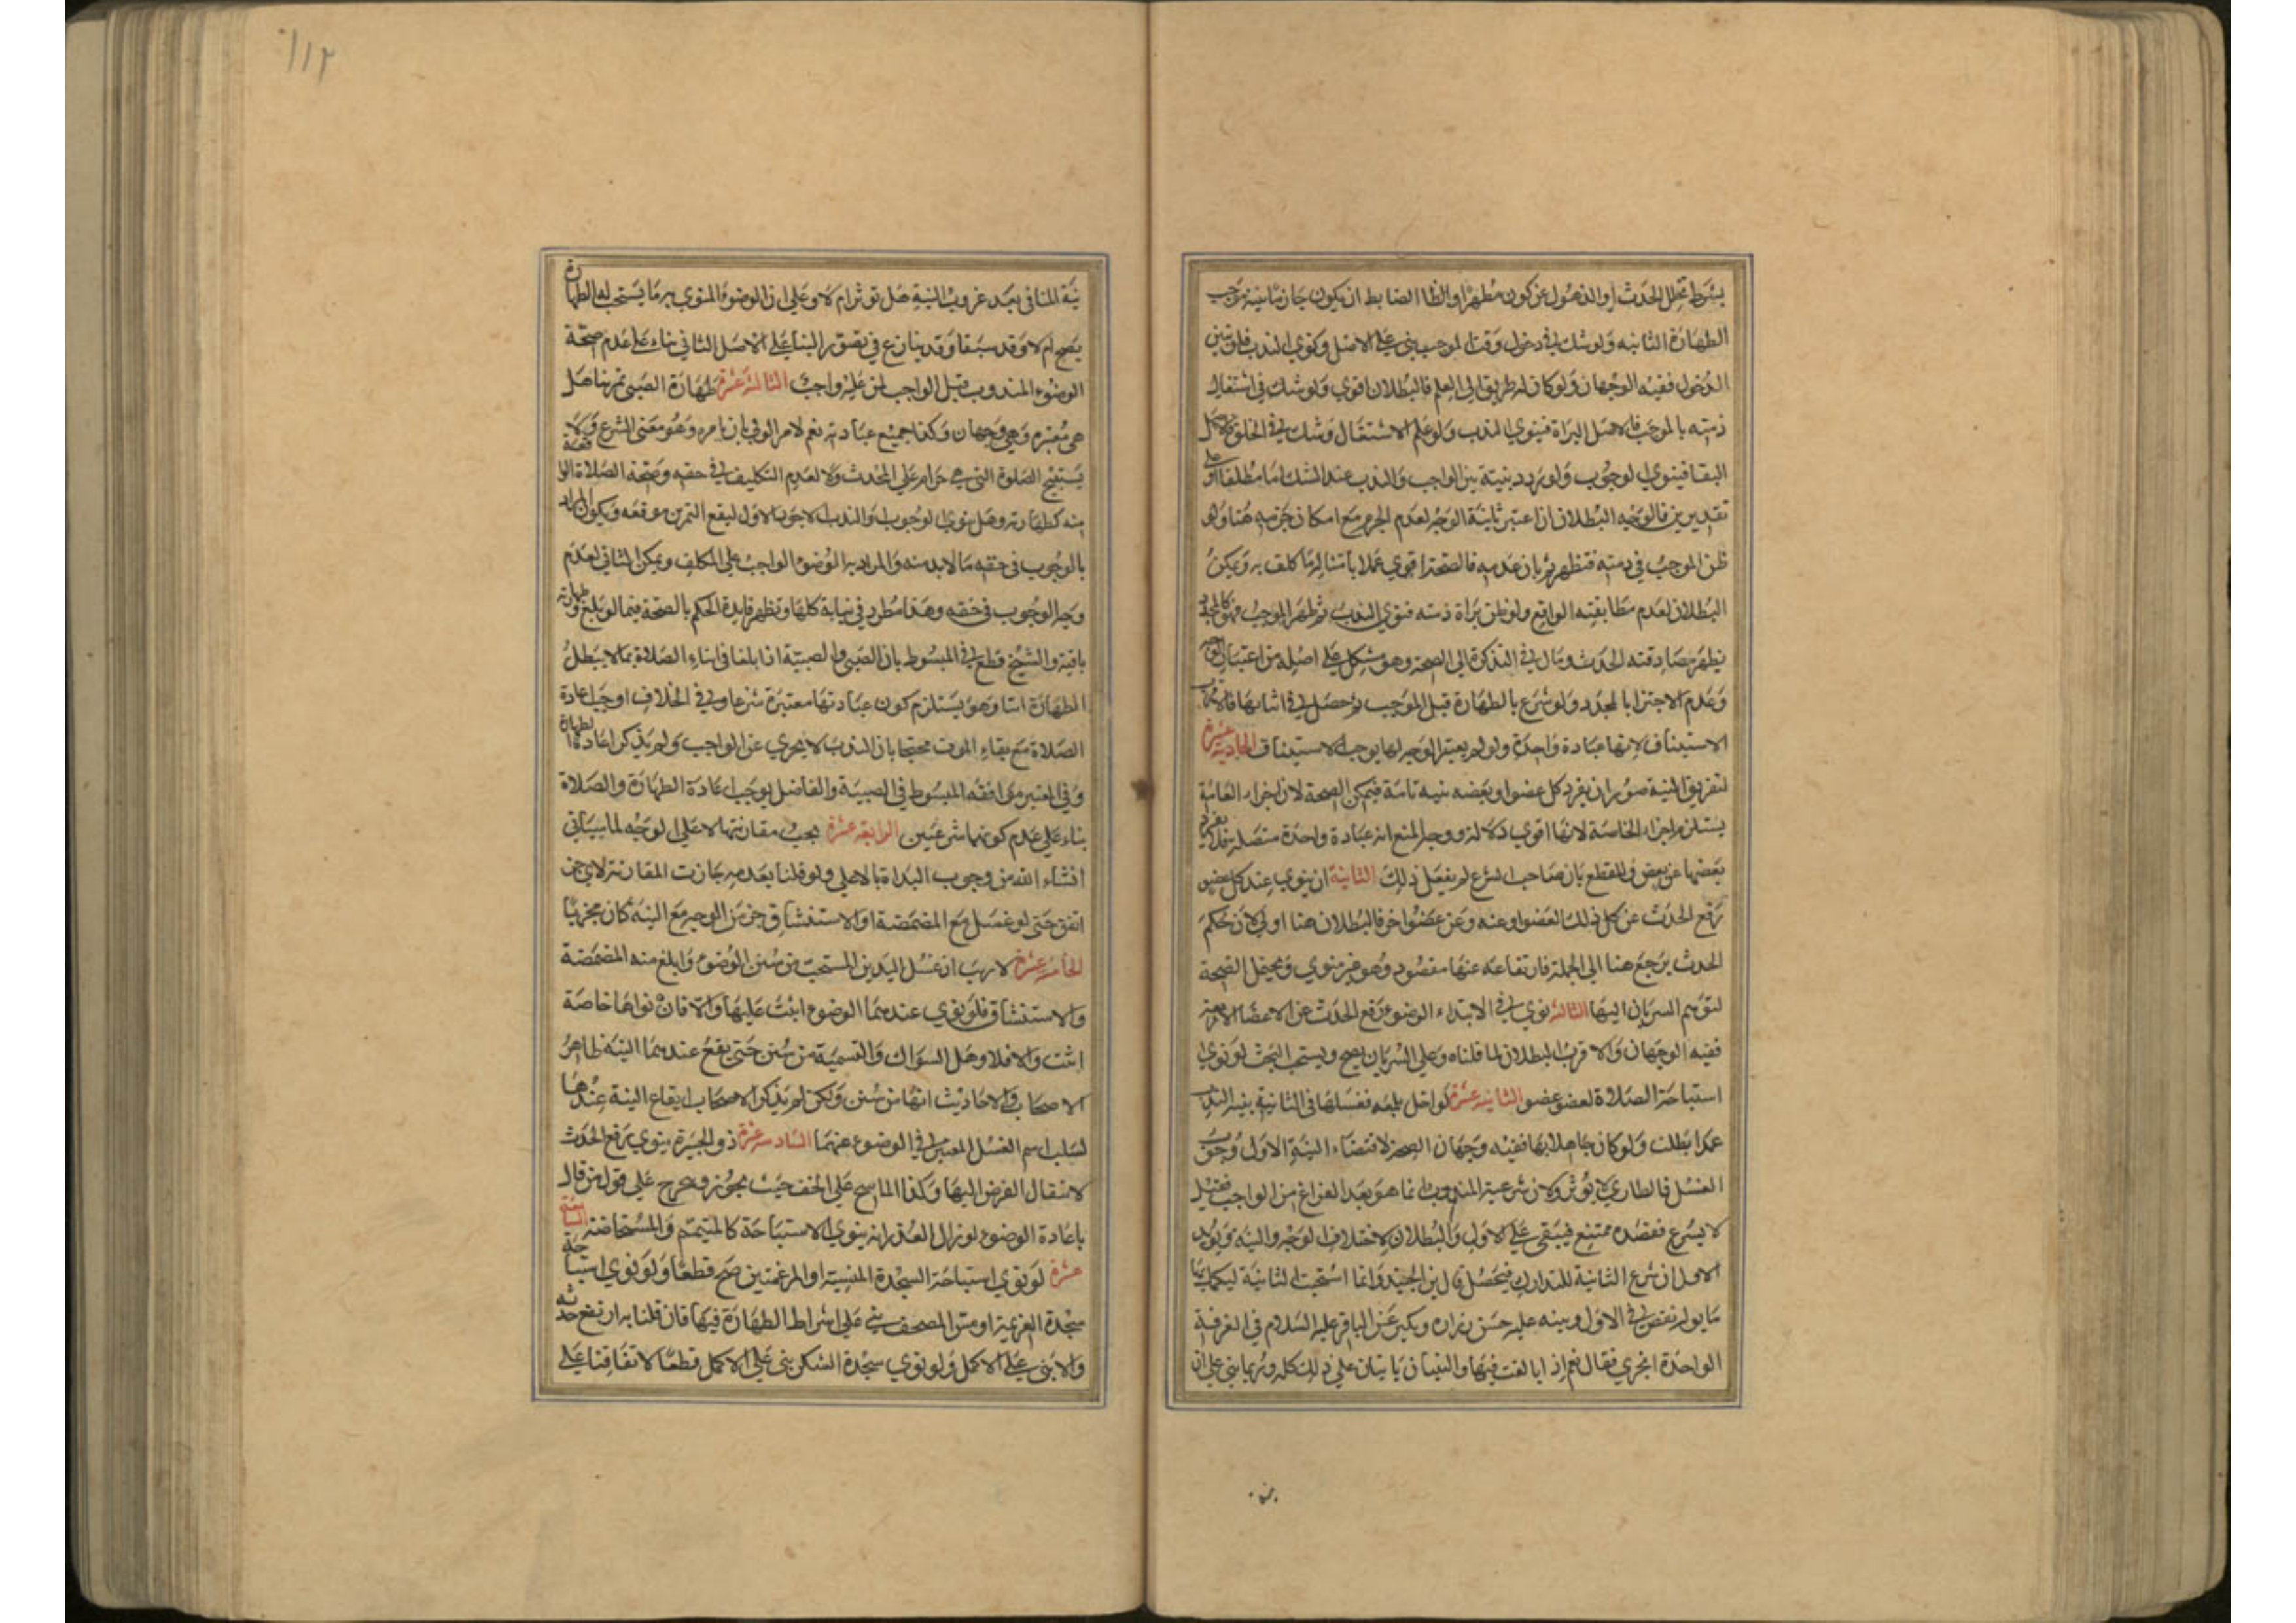 يشترط تخلل الحدث أو الذهول عن كونه مطهرا والظاهر الضابط ان يكون جازما بنية موجب
الطهارة الثانيه ولو شك في دخول وقت الموجب بني على الاصل ونوي الندب فلو تبين
الدخول ففيه الوجهان ولو كان له طريق الى العلم فالبطلان اقوي ولو شك في اشتغال
ذمته بالموجب فالاصل البراة فينوي الندب ولو علم الاشتغال وشك في الخلو فالاصل
البقا فينوي الوجوب ولو ردد بنيته بين الواجب والندب عند الشك اما مطلقا او على
تقديرين فالوجه البطلان ان اعتبر نية الوجه لعدم الجزم مع امكان جزمه هنا ولو
ظن الموجب في ذمته فتطهر ثم بان عدمه فالصحة اقوي عملا بامتثاله ما كلف به ويمكن
البطلان لعدم مطابقته الواقع ولو ظن براة ذمته فنوي الندب ثم ظهر الموجب فهو كالمجدد
يظهر مصادفته الحدث ومال في التذكرة الى الصحة وهو مشكل على اصله من اعتبار الوجه
وعدم الاجتزا بالمجدد ولو شرع بالطهارة قبل الموجب ثم حصل في اثنائها فالاقرب
الاستيناف لانها عبادة واحدة ولو لم يعتبر الوجه لها يوجب الاستيناف الحادية عشرة
لتفريق النية صور ان يفرد كل عضو او بعضه بنيه تامة فيمكن الصحة لان اجزاء العامة
يستلزم اجزاء الخاصة لانها اقوي دلالة ووجه المنع انه عبادة واحدة متصلة فلا يفرد
بعضها عن بعض وللقطع بان صاحب الشرع لم يفعل ذلك الثانية ان ينوي عند كل عضو
رفع الحدث عن كل ذلك العضو او عنه وعن عضو اخر فالبطلان هنا اولى لان حكم
الحدث يرجع هنا الى الجملة فارتفاعه عنها مقصود وهو غير منوي ويحتمل الصحة
لتوهم السريان اليها الثالثة نوي في الابتداء الوضوء رفع الحدث عن الاعضا الاربعة
ففيه الوجهان والاقرب البطلان لما قلناه وعلى السريان يصح ويستحب البحث لو نوي
استباحة الصلاة لعضو عضو الثانية عشرة لو اخل بلمعه فغسلها في الثانية بنية الندب
عمدا بطلت ولو كان جاهلا بها ففيه وجهان الصحة لاقتضاء النية الاولى وجوب
الغسل فالطاري لا يؤثر ولان شرعية المندوب انما هو بعد الفراغ من الواجب فقبله
لا يشرع فقصده ممتنع فيبقى على الاول والبطلان لاختلاف الوجه والنية ويؤيد
الاول ان شرع الثانية للتدارك فيحصل قال ابن الجنيد وانما استحب الثانية ليكمل بها
ما بوله نقص في الاول وبينه عليه حسن زرارة وبكير عن الباقر عليه السلام في الغرفة
الواحدة اتجزي فقال نعم اذا بالغت فيها والثنتان ياتيان على ذلك كله وربما بني على ان
نية المنافي بعد غروب النية هل تؤثر ام لا وعلى ان الوضوء المنوي به ما يستحب له الطهارة
يصح ام لا وقد سبقا وقد ينازع في تصور البنا على الاصل الثاني بناء على عدم صحة
الوضوء المندوب قبل الواجب لمن عليه واجب الثالثة عشرة طهارة الصبي تمرينا هل
هي معتبرة وهي وجهان وكذا جميع عبادته نعم لامر الولي بان يامره وهو معنى الشرع ولا
يستبيح الصلوة التي هي حرام على المحدث ولا لعدم التكليف في حقه وصحة الصلاة الواقعة
منه كطهارته وهل ينوي الوجوب او الندب الاجود الاول ليقع التمرين موقعه ويكون المراد
بالوجوب في حقه ما لا بد منه والمراد به الوضوء الواجب على المكلف ويمكن الثاني لعدم
وجه الوجوب في حقه وهذا مطرد في نيابة كلها وتظهر فايدة الحكم بالصحة فيما لو بلغ وطهارته
باقية والشيخ قطع في المبسوط بان الصبي والصبية اذا بلغا في اثناء الصلاة بما لا يبطل
الطهارة اتما وهو يستلزم كون عبادتها معتبرة شرعا وفي الخلاف اوجب اعادة
الصلاة مع بقاء الوقت محتجا بان الندب لا يجزي عن الواجب ولم يذكر اعادة الطهارة
وفي المعتبر موافقة المبسوط في الصبية والفاضل يوجب اعادة الطهارة والصلاة
بناء على عدم كونهما شرعيين الرابعة عشرة يجب مقارنتها لاعلى الوجه لما سياتي
انشاء الله من وجوب البداة بالاعلى ولو قلنا بعدمه جازت المقارنة لاي جزء
اتفق حتى لو غسل مع المضمضة او الاستنشاق جزء من الوجه مع النية كان مجزيا
الخامسة عشرة لا ريب ان غسل اليدين المستحب من سنن الوضوء وابلغ منه المضمضة
والاستنشاق فلو نوي عندهما الوضوء اثبت عليها والا فان نواها خاصة
اثبت والا فلا وهل السواك والتسمية من سنن حتى يقع عندهما النية ظاهر
الاصحاب والاحاديث انها من سنن ولكن لم يذكر الاصحاب ايقاع النية عندها
لسلب اسم الغسل المعتبر في الوضوء عنهما السادسة عشرة ذو الجبيرة ينوي رفع الحدث
لانتقال الفرض اليها وكذا الماسح على الخف حيث يجوز وتخرج على قول من قال
باعادة الوضوء لو زال العذر انه ينوي الاستباحة كالمتيمم والمستحاضة السابعة
عشرة لو نوي استباحة السجدة المنسية او المرغمتين صح قطعا ولو نوي استباحة
سجدة العزيمة او مس المصحف بني على اشتراط الطهارة فيها فان قلنا به ارتفع حدثه
والا بني على الاكمل ولو نوي سجدة الشكر بني على الاكمل قطعا لاتفاقنا على
١١٢